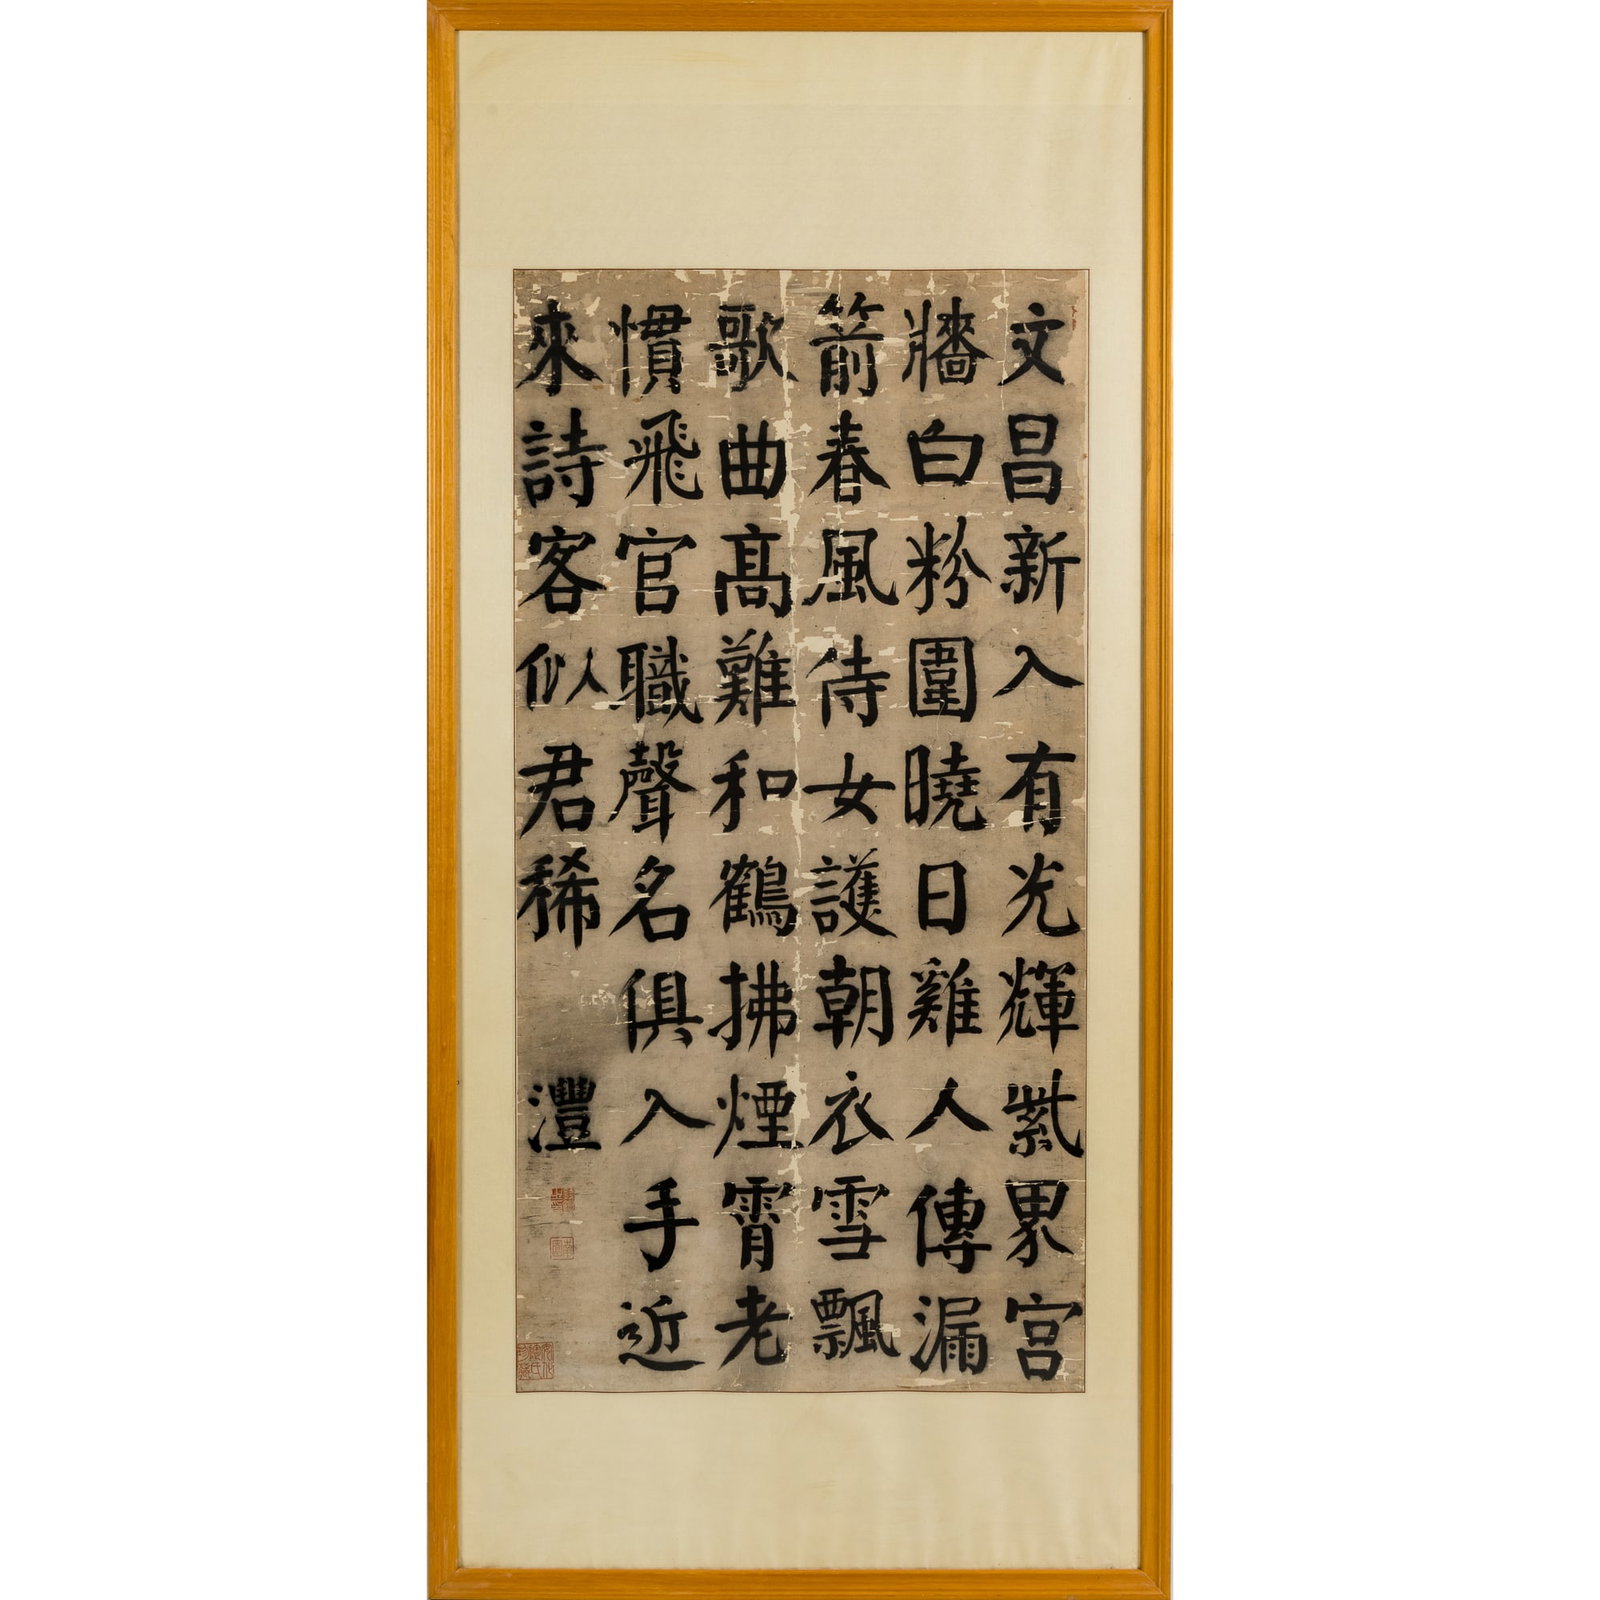 文昌新入有光輝紫界宮
牆白粉圍曉日雞人傳漏
箭春風侍女護朝衣雪飄
歌曲高難和鶴拂煙霄老
慣飛官職聲名俱入手近
來詩客似君稀
灃